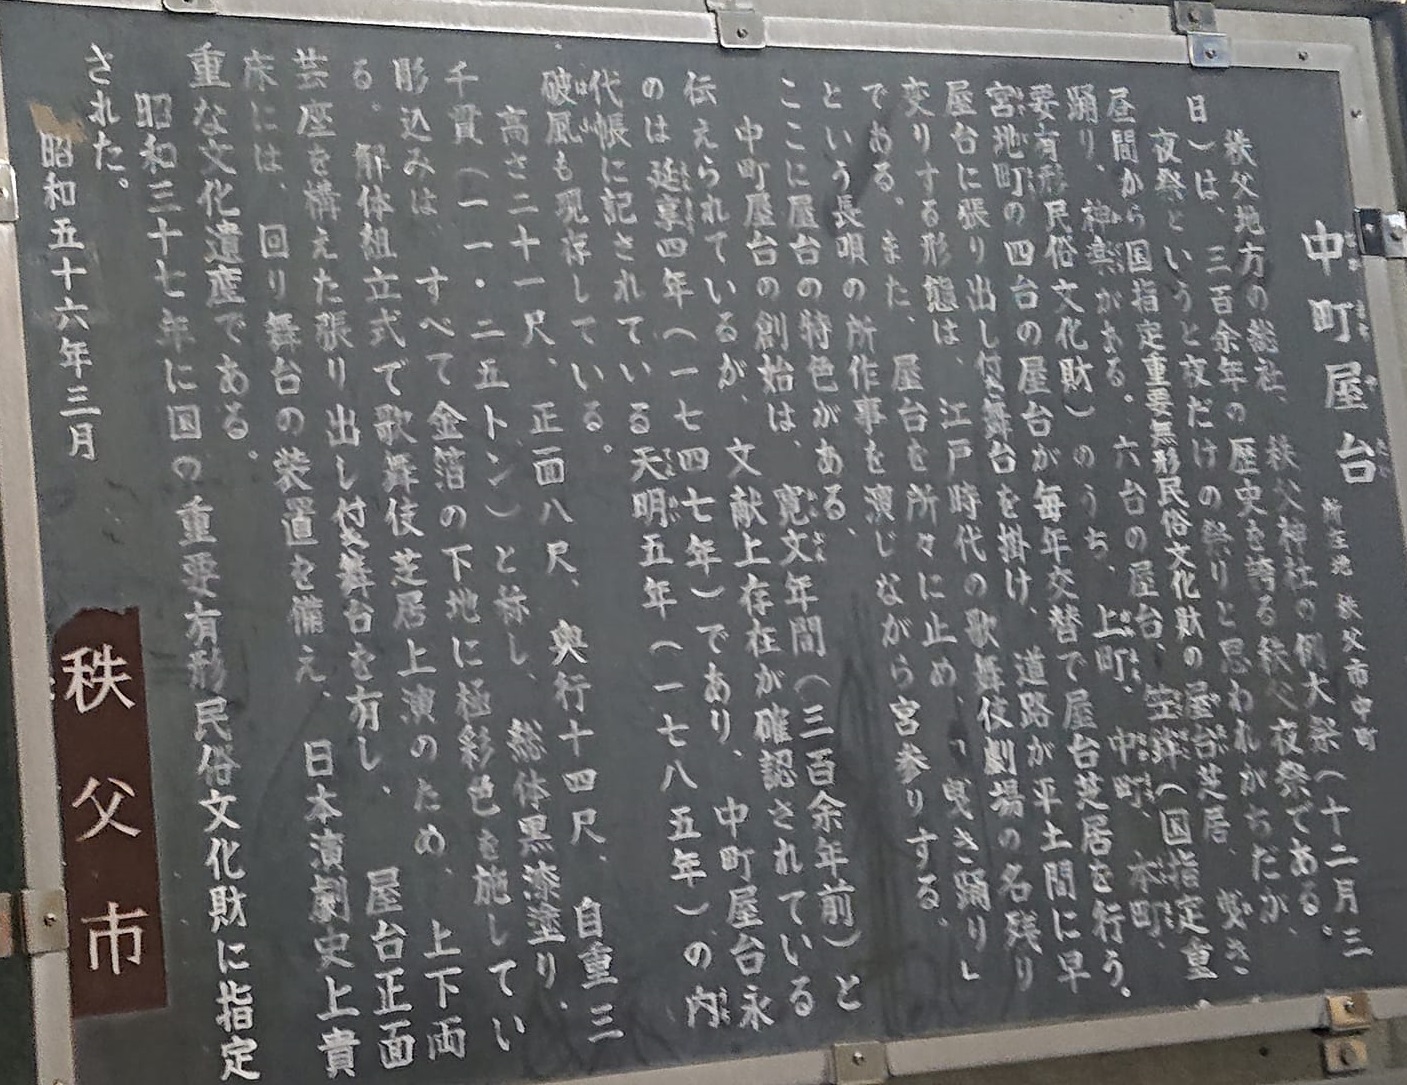 中町屋台 所在地 秩父市中町
秩父地方の総社、秩父神社の例大祭(十二月三
日)は、三百余年の歴史を誇る秩父夜祭である。
夜祭というと夜だけの祭りと思われがちだが、
昼間から国指定重要無形民俗文化財の屋台芝居、曳き
踊り、神楽がある。六台の屋台、笠鉾(国指定重
要有形民俗文化財)のうち、上町、中町、本町、
宮地町の四台の屋台が毎年交替で屋台芝居を行う。
屋台に張り出し付き舞台を掛け、道路が平土間に早
変りする形態は、江戸時代の歌舞伎劇場の名残り
である。また、屋台を所々に止め「曳き踊り」
という長唄の所作事を演じながら宮参りする。
ここに屋台の特色がある。
中町屋台の創始は、寛文年間(三百余年前)と
伝えられているが、文献上存在が確認されている
のは延享四年(一七四七年)であり、中町屋台永
代帳に記されている天明五年(一七八五年)の内
破風も現存している。
高さ二十一尺、正面八尺、奥行十四尺、自重三
千貫(一一・二五トン)と称し、総体黒漆塗り、
彫込みは、すべて金箔の下地に極彩色を施してい
る。解体組立式で歌舞伎芝居上演のため、上下両
芸座を構えた張り出し付き舞台を有し、屋台正面
床には、回り舞台の装置を備え、日本演劇史上貴
重な文化遺産である。
昭和三十七年に国の重要有形民俗文化財に指定
された。
昭和五十六年三月
秩父市